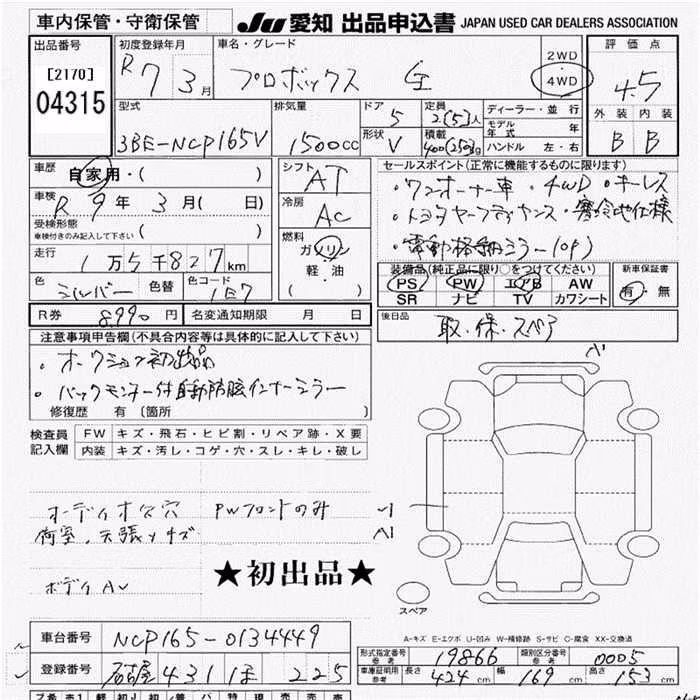 車内保管・守衛保管
JU 愛知 出品申込書 JAPAN USED CAR DEALERS ASSOCIATION
出品番号 [2170] 04315
初度登録年月 R7 3月
車名・グレード プロボックス G
2WD・4WD
評価点 4.5
外装 内装
B B
型式 3BE-NCP165V
排気量 1500cc
ドア 5
形状 V
定員 2(5)人
積載 400(250)kg
ディーラー・並行
モデル年式 年
ハンドル 左・右
車歴 自家用・( )
車検 R9年3月( 日)
受検形態
車検付きのみ記入して下さい ( )
走行 1万5千827km
色 シルバー 色替 色コード 1E7
シフト AT
冷房 AC
燃料 ガソリン
軽・油
・( )
セールスポイント(正常に機能するものに限ります)
・ワンオーナー車・4WD・キーレス
・トヨタセーフティセンス・寒冷地仕様
・電動格納ミラー(OP)
装備品(純正品に限り○をつけてください)
PS PW エアB AW
SR ナビ TV カワシート
新車保証書
有・無
R券 8,990円 名変通知期限 月 日
後日品 取・保・スペア
注意事項申告欄(不具合内容等は具体的に記入して下さい)
・オークション初出品
・バックモニター付自動防眩インナーミラー
修復歴 有 〔箇所 〕
検査員記入欄
FW キズ・飛石・ヒビ割・リペア跡・X要
内装 キズ・汚し・コゲ・穴・スレ・キレ・破し
オーディオレス穴 PWフロントのみ
荷室、天張リキズ
ボディAV
★初出品★
スペア
A-キズ E-エクボ U-凹み W-補修跡 S-サビ C-腐食 XX-交換済
車台番号 NCP165-0134449
登録番号 名古屋 431 225
形式指定番号 参考 19866
類別区分番号 参考 0005
車庫証明用 参考 長さ 424cm 幅 169cm 高さ 153cm